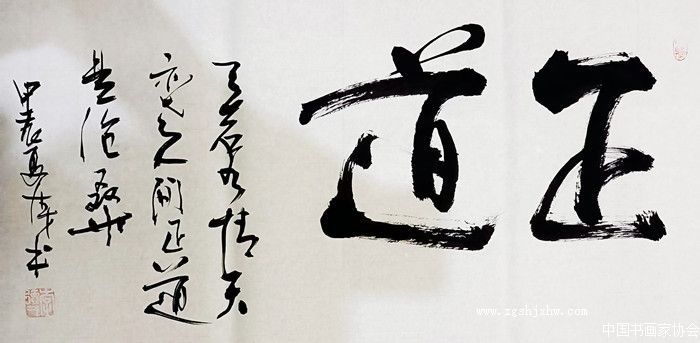 正道
天若有情天
亦老人间正道
是沧桑
甲辰夏
书
www.zgshjxhw.com
中国书画家协会